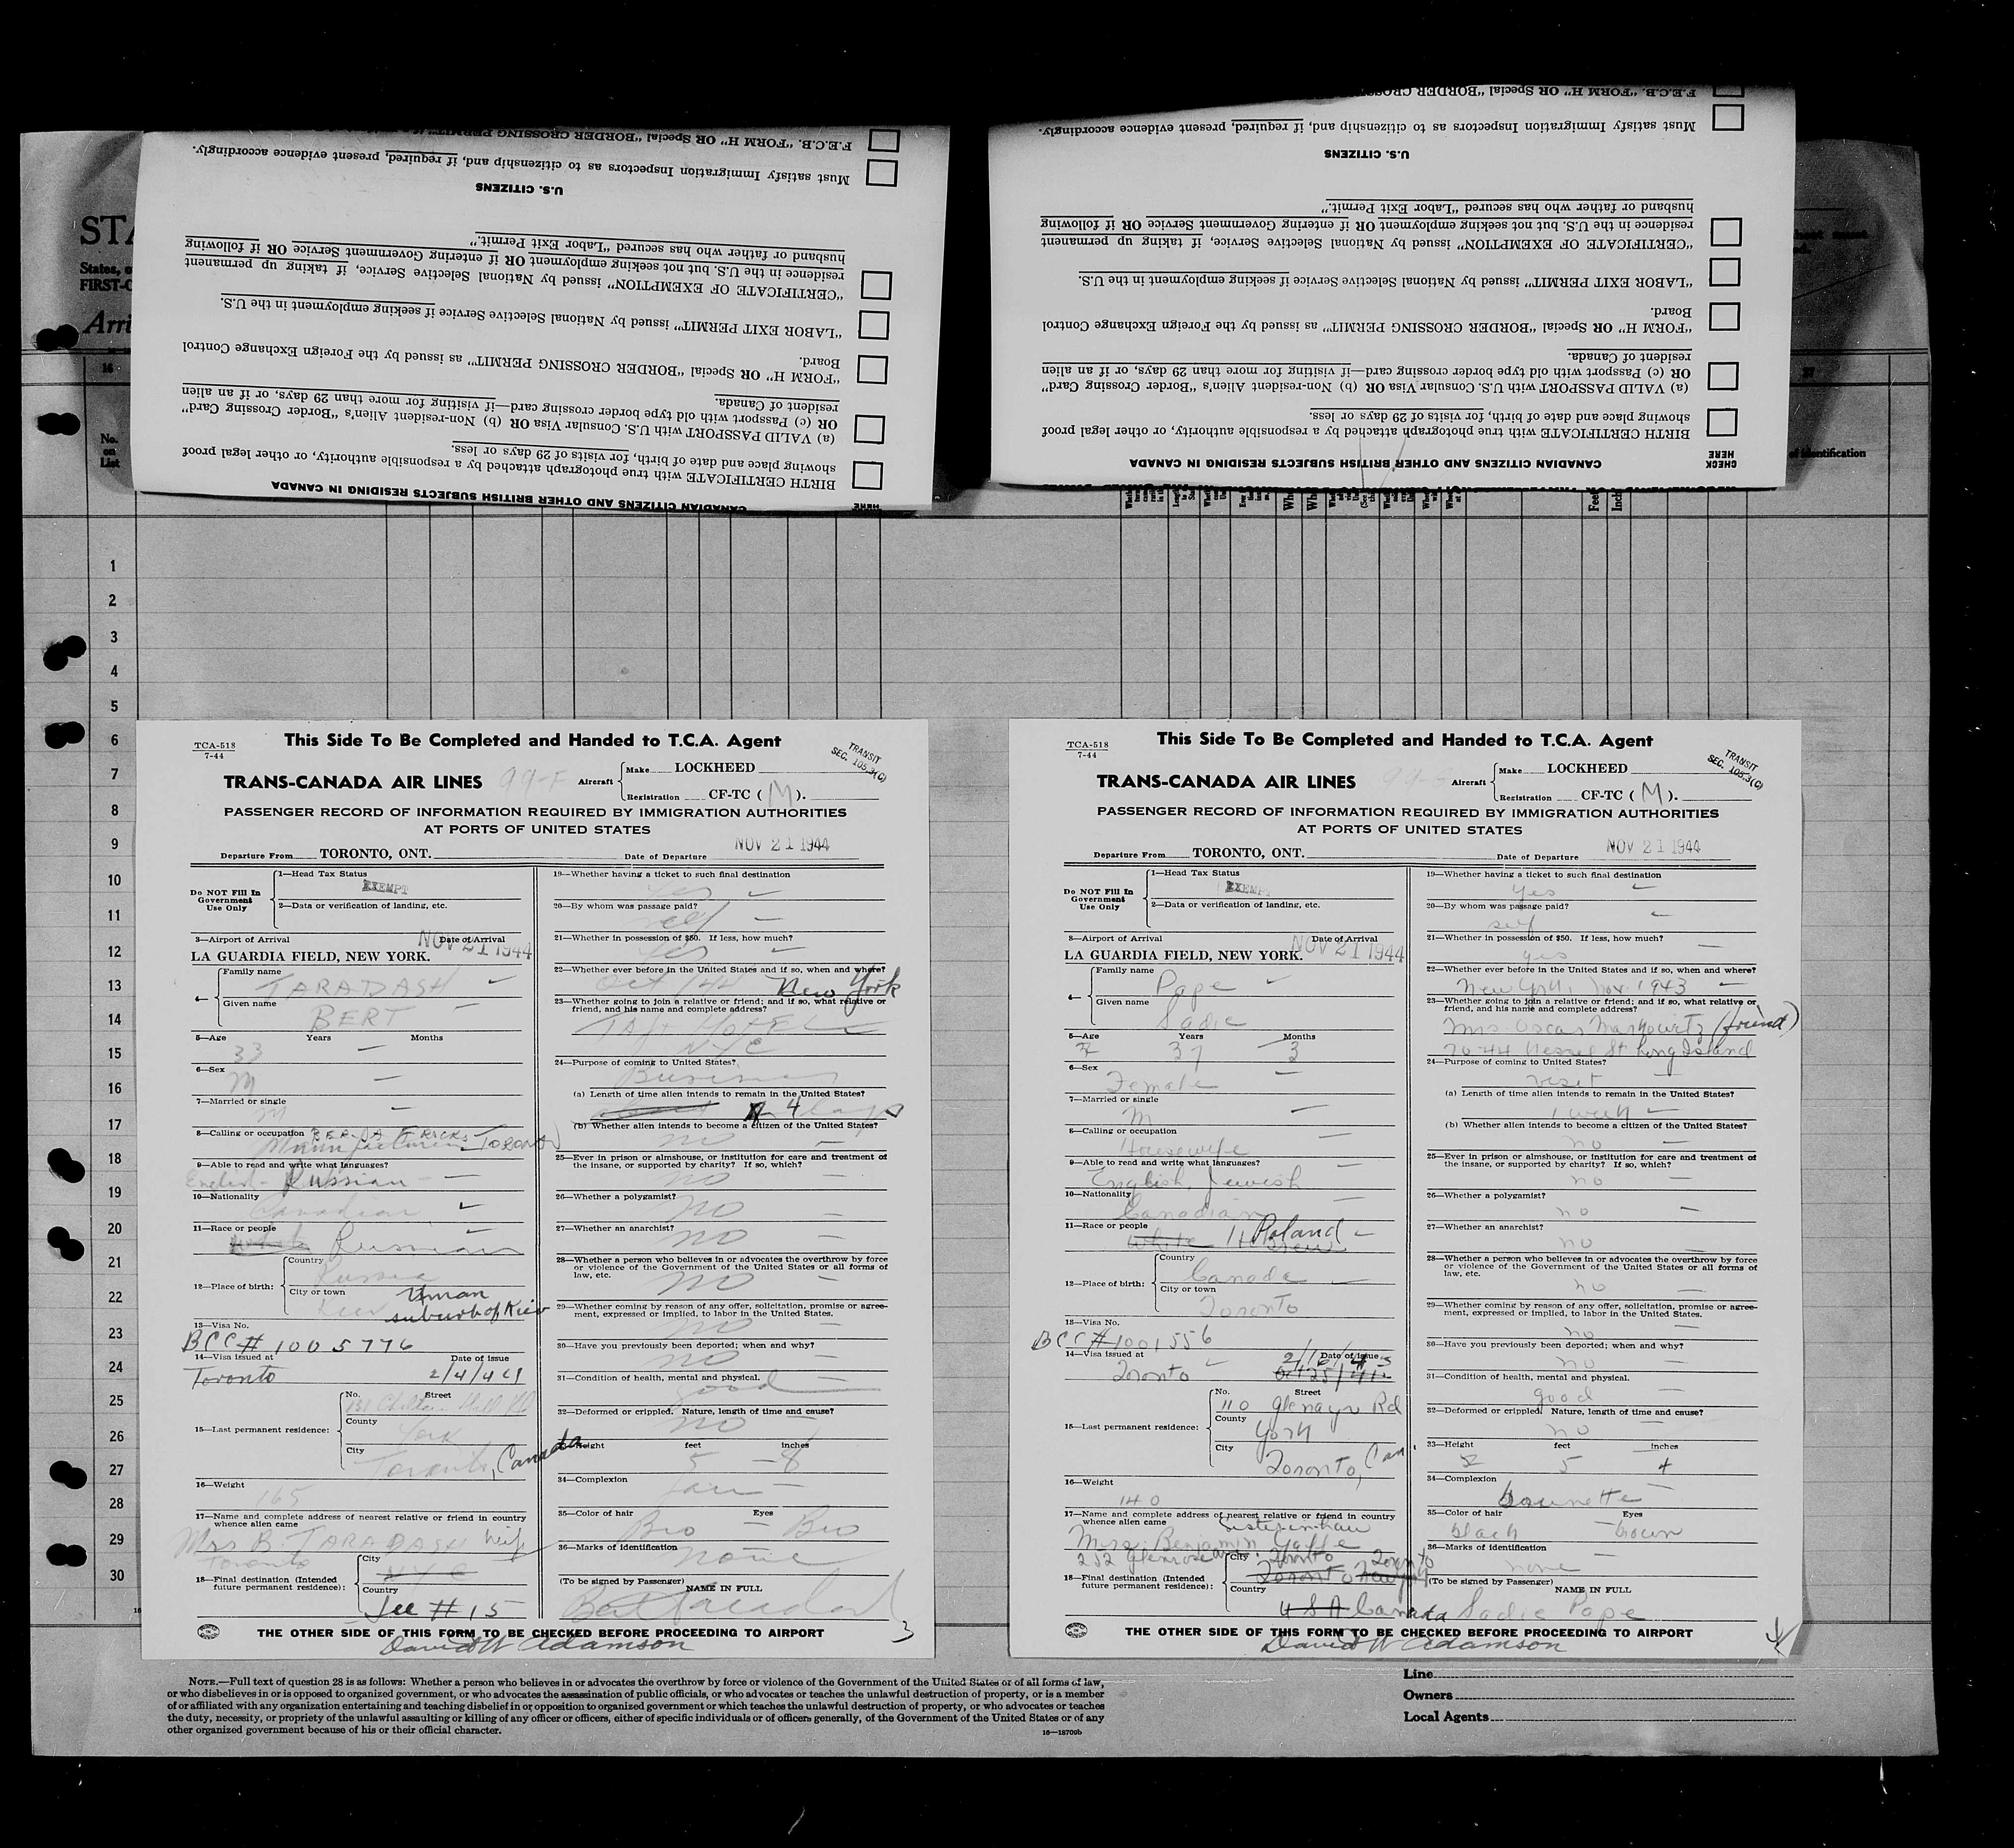 F.E.C.B. "FORM H" OR Special "BORDER CROSSING PERMIT"
Must satisfy Immigration Inspectors as to citizenship and, if required, present evidence accordingly.
U.S. CITIZENS
husband or father who has secured "Labor Exit Permit."
residence in the U.S. but not seeking employment OR if entering Government Service OR if following
"CERTIFICATE OF EXEMPTION" issued by National Selective Service, if taking up permanent
"LABOR EXIT PERMIT" issued by National Selective Service if seeking employment in the U.S.
Board.
"FORM H" OR Special "BORDER CROSSING PERMIT" as issued by the Foreign Exchange Control
resident of Canada.
OR (c) Passport with old type border crossing card—if visiting for more than 29 days, or if an alien
(a) VALID PASSPORT with U.S. Consular Visa OR (b) Non-resident Alien's "Border Crossing Card"
showing place and date of birth, for visits of 29 days or less.
BIRTH CERTIFICATE with true photograph attached by a responsible authority, or other legal proof
CANADIAN CITIZENS AND OTHER BRITISH SUBJECTS RESIDING IN CANADA
HERE
F.E.C.B. "FORM H" OR Special "BORDER
Must satisfy Immigration Inspectors as to citizenship and, if required, present evidence accordingly.
U.S. CITIZENS
husband or father who has secured "Labor Exit Permit."
residence in the U.S. but not seeking employment OR if entering Government Service OR if following
"CERTIFICATE OF EXEMPTION" issued by National Selective Service, if taking up permanent
"LABOR EXIT PERMIT" issued by National Selective Service if seeking employment in the U.S.
Board.
"FORM H" OR Special "BORDER CROSSING PERMIT" as issued by the Foreign Exchange Control
resident of Canada.
OR (c) Passport with old type border crossing card—if visiting for more than 29 days, or if an alien
(a) VALID PASSPORT with U.S. Consular Visa OR (b) Non-resident Alien's "Border Crossing Card"
showing place and date of birth, for visits of 29 days or less.
BIRTH CERTIFICATE with true photograph attached by a responsible authority, or other legal proof
CANADIAN CITIZENS AND OTHER BRITISH SUBJECTS RESIDING IN CANADA
CHECK HERE
STA
States,
FIRST-C
Arri
16
No. on List
of identification
Feet
Inch
1
2
3
4
5
6
7
8
9
10
11
12
13
14
15
16
17
18
19
20
21
22
23
24
25
26
27
28
29
30
TCA-518
7-44
This Side To Be Completed and Handed to T.C.A. Agent
TRANSIT
SEC. 105.3(C)
TRANS-CANADA AIR LINES 99-F Aircraft Make LOCKHEED
Registration CF-TC ( M ).
PASSENGER RECORD OF INFORMATION REQUIRED BY IMMIGRATION AUTHORITIES
AT PORTS OF UNITED STATES
Departure From TORONTO, ONT. Date of Departure NOV 21 1944
Do NOT Fill In Government Use Only
1—Head Tax Status
EXEMPT
2—Data or verification of landing, etc.
3—Airport of Arrival Date of Arrival
LA GUARDIA FIELD, NEW YORK. NOV 21 1944
4— Family name
TARADASH
Given name
BERT
5—Age Years Months
33
6—Sex
M
7—Married or single
M
8—Calling or occupation
Manufacturer TORONTO
9—Able to read and write what languages?
English - Russian
10—Nationality
Canadian
11—Race or people
White Russian
12—Place of birth: Country
Russia
City or town
Kiev Uman
suburb of Kiev
13—Visa No.
BCC # 1005776
14—Visa issued at Date of issue
Toronto 2/4/44
15—Last permanent residence: No. Street
County
York
City
Toronto, Canada
16—Weight
165
17—Name and complete address of nearest relative or friend in country
whence alien came
Mrs B. TARADASH wife
Toronto
18—Final destination (Intended
future permanent residence): City
NYC
Country
See # 15
19—Whether having a ticket to such final destination
Yes
20—By whom was passage paid?
self
21—Whether in possession of $50. If less, how much?
Yes
22—Whether ever before in the United States and if so, when and where?
Oct /44 New York
23—Whether going to join a relative or friend; and if so, what relative or
friend, and his name and complete address?
TAFT HOTEL
NYC
24—Purpose of coming to United States?
Business
(a) Length of time alien intends to remain in the United States?
4 days
(b) Whether alien intends to become a citizen of the United States?
no
25—Ever in prison or almshouse, or institution for care and treatment of
the insane, or supported by charity? If so, which?
no
26—Whether a polygamist?
no
27—Whether an anarchist?
no
28—Whether a person who believes in or advocates the overthrow by force
or violence of the Government of the United States or all forms of
law, etc.
no
29—Whether coming by reason of any offer, solicitation, promise or agree-
ment, expressed or implied, to labor in the United States.
no
30—Have you previously been deported; when and why?
no
31—Condition of health, mental and physical.
good
32—Deformed or crippled. Nature, length of time and cause?
no
33—Height feet inches
5 - 8
34—Complexion
fair
35—Color of hair Eyes
Bro - Bro
36—Marks of identification
none
(To be signed by Passenger) NAME IN FULL
Bert Taradash
3
THE OTHER SIDE OF THIS FORM TO BE CHECKED BEFORE PROCEEDING TO AIRPORT
David W Adamson
TCA-518
7-44
This Side To Be Completed and Handed to T.C.A. Agent
TRANSIT
SEC. 105.3(C)
TRANS-CANADA AIR LINES Aircraft Make LOCKHEED
Registration CF-TC ( M ).
PASSENGER RECORD OF INFORMATION REQUIRED BY IMMIGRATION AUTHORITIES
AT PORTS OF UNITED STATES
Departure From TORONTO, ONT. Date of Departure NOV 21 1944
Do NOT Fill In Government Use Only
1—Head Tax Status
EXEMPT
2—Data or verification of landing, etc.
3—Airport of Arrival Date of Arrival
LA GUARDIA FIELD, NEW YORK. NOV 21 1944
4— Family name
Pape
Given name
Sadie
5—Age Years Months
37 3
6—Sex
Female
7—Married or single
M
8—Calling or occupation
Housewife
9—Able to read and write what languages?
English, Jewish
10—Nationality
Canadian
11—Race or people
White Hebrew Poland
12—Place of birth: Country
Canada
City or town
Toronto
13—Visa No.
BCC # 1001556
14—Visa issued at Date of issue
Toronto
15—Last permanent residence: No. Street
110 Glenayr Rd
County
York
City
Toronto, Can.
16—Weight
140
17—Name and complete address of nearest relative or friend in country
whence alien came Sister-in-law
Mrs. Benjamin Yaffe
252 Glenrose Ave. Toronto
18—Final destination (Intended
future permanent residence): City
Toronto New York Toronto
Country
USA Canada
19—Whether having a ticket to such final destination
yes
20—By whom was passage paid?
self
21—Whether in possession of $50. If less, how much?
yes
22—Whether ever before in the United States and if so, when and where?
New York, Nov. 1943
23—Whether going to join a relative or friend; and if so, what relative or
friend, and his name and complete address?
Mrs Oscar Markowitz (friend)
St Long Island
24—Purpose of coming to United States?
visit
(a) Length of time alien intends to remain in the United States?
1 week
(b) Whether alien intends to become a citizen of the United States?
no
25—Ever in prison or almshouse, or institution for care and treatment of
the insane, or supported by charity? If so, which?
no
26—Whether a polygamist?
no
27—Whether an anarchist?
no
28—Whether a person who believes in or advocates the overthrow by force
or violence of the Government of the United States or all forms of
law, etc.
no
29—Whether coming by reason of any offer, solicitation, promise or agree-
ment, expressed or implied, to labor in the United States.
no
30—Have you previously been deported; when and why?
no
31—Condition of health, mental and physical.
good
32—Deformed or crippled. Nature, length of time and cause?
no
33—Height feet inches
5 4
34—Complexion
brunette
35—Color of hair Eyes
black - brown
36—Marks of identification
none
(To be signed by Passenger) NAME IN FULL
Sadie Pape
4
THE OTHER SIDE OF THIS FORM TO BE CHECKED BEFORE PROCEEDING TO AIRPORT
David W Adamson
NOTE.—Full text of question 28 is as follows: Whether a person who believes in or advocates the overthrow by force or violence of the Government of the United States or of all forms of law,
or who disbelieves in or is opposed to organized government, or who advocates the assassination of public officials, or who advocates or teaches the unlawful destruction of property, or is a member
of or affiliated with any organization entertaining and teaching disbelief in or opposition to organized government or which teaches the unlawful destruction of property, or who advocates or teaches
the duty, necessity, or propriety of the unlawful assaulting or killing of any officer or officers, either of specific individuals or of officers generally, of the Government of the United States or of any
other organized government because of his or their official character.
16—18709b
Line
Owners
Local Agents